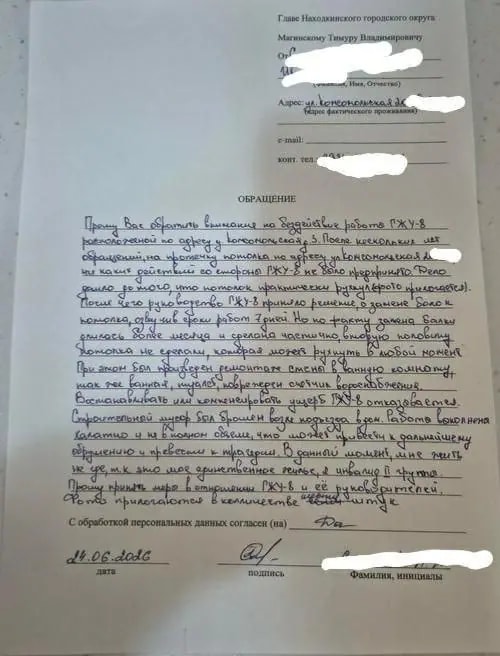 Главе Находкинского городского округа
Магинскому Тимуру Владимировичу
От
(Фамилия, Имя, Отчество)
Адрес: ул. Комсомольская
(адрес фактического проживания)
e-mail:
конт. тел.
ОБРАЩЕНИЕ
Прошу Вас обратить внимание на бездействие работы ГЖУ-8
расположенной по адресу ул Комсомольская, 3. После нескольких лет
обращений, на протечку потолка по адресу ул Комсомольская
ни каких действий со стороны ГЖУ-8 не было предпринято. Дело
дошло до того, что потолок практически рухнул (фото прилогается).
После чего руководство ГЖУ-8 приняло решение, о замене балок
потолка, озвучив сроки работ 7 дней. Но по факту замена балки
длилась более месяца и сделана частично, вторую половину
потолка не сделали, которая может рухнуть в любой момент
При этом был произведен демонтаж стены в ванную комнату,
так же ванная, туалет, поврежден счетчик водоснабжения.
Востанавливать или компенсировать ущерб ГЖУ-8 отказовается.
Строительный мусор был брошен возле подъезда дома. Работа выполнена
халатно и не в полном объеме, что может привести к дальнейшему
обрушению и превести к трагедии. В данной момент, мне жить
не где, т.к это мое единственное жилье, я инвалид II группы
Прошу принять меры в отношении ГЖУ-8 и её руководителей.
Фото прилогаются в количестве штук
С обработкой персональных данных согласен (на) Да
24.06.2026
дата подпись Фамилия, инициалы